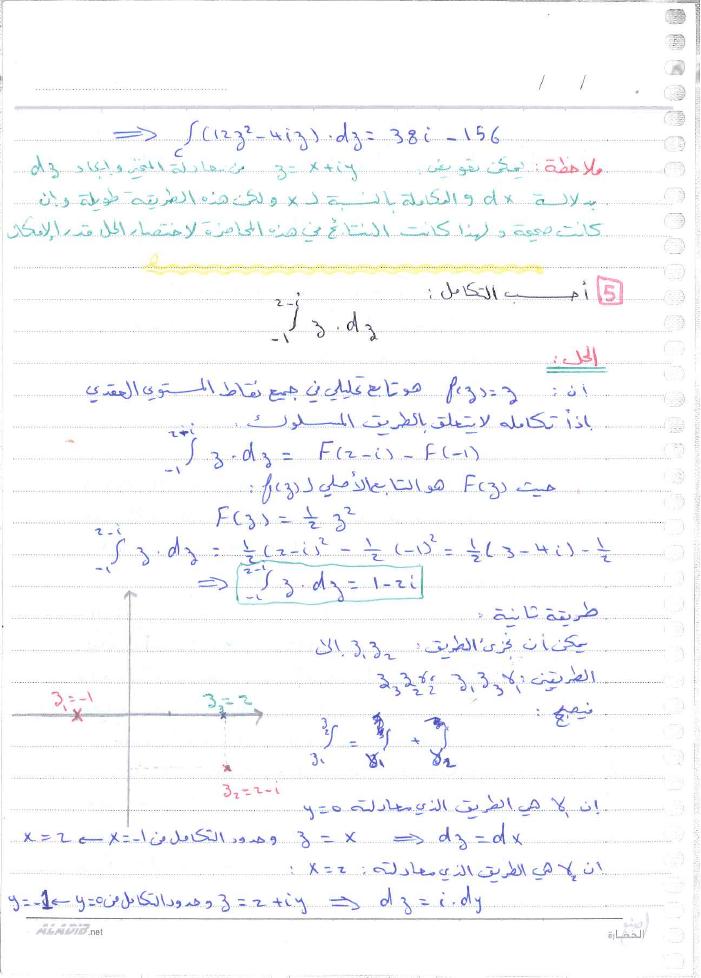 / /
⟹ ∫c (12z² - 4iz) · dz = 38i - 156
ملاحظة: يمكن تعويض z = x + iy من معادلة المنحني وإيجاد dz
بدلالة dx والمكاملة بالنسبة لـ x ولكن هذه الطريقة طويلة وإن
كانت صحيحة ولهذا كانت النتائج في هذه المحاضرة لاختصار الحل قدر الإمكان
5 أحسب التكامل:
∫₋₁²⁻ⁱ z · dz
الحل:
ان: f(z) = z هو تابع تحليلي في جميع نقاط المستوي العقدي
إذاً تكامله لا يتعلق بالطريق المسلوك.
∫₋₁²⁻ⁱ z · dz = F(2-i) - F(-1)
حيث F(z) هو التابع الأصلي لـ f(z):
F(z) = ½ z²
∫₋₁²⁻ⁱ z · dz = ½(2-i)² - ½(-1)² = ½(3-4i) - ½
⟹ ∫₋₁²⁻ⁱ z · dz = 1-2i
طريقة ثانية:
يمكن أن نجزئ الطريق: z₁z₂ إلى
الطريقين: γ₁ z₁z₃ γ₂ z₃z₂
z₁ = -1
z₃ = 2
فيصبح:
∫z₁z₂ = ∫γ₁ + ∫γ₂
z₂ = 2-i
إن γ₁ هي الطريق الذي معادلته y = 0
z = x ⟹ dz = dx وحدود التكامل من x = -1 ← x = 2
ان γ₂ هي الطريق الذي معادلته: x = 2:
z = 2 + iy ⟹ dz = i · dy وحدود التكامل من y = 0 ← y = -1
ALADIB.net
الحضارة